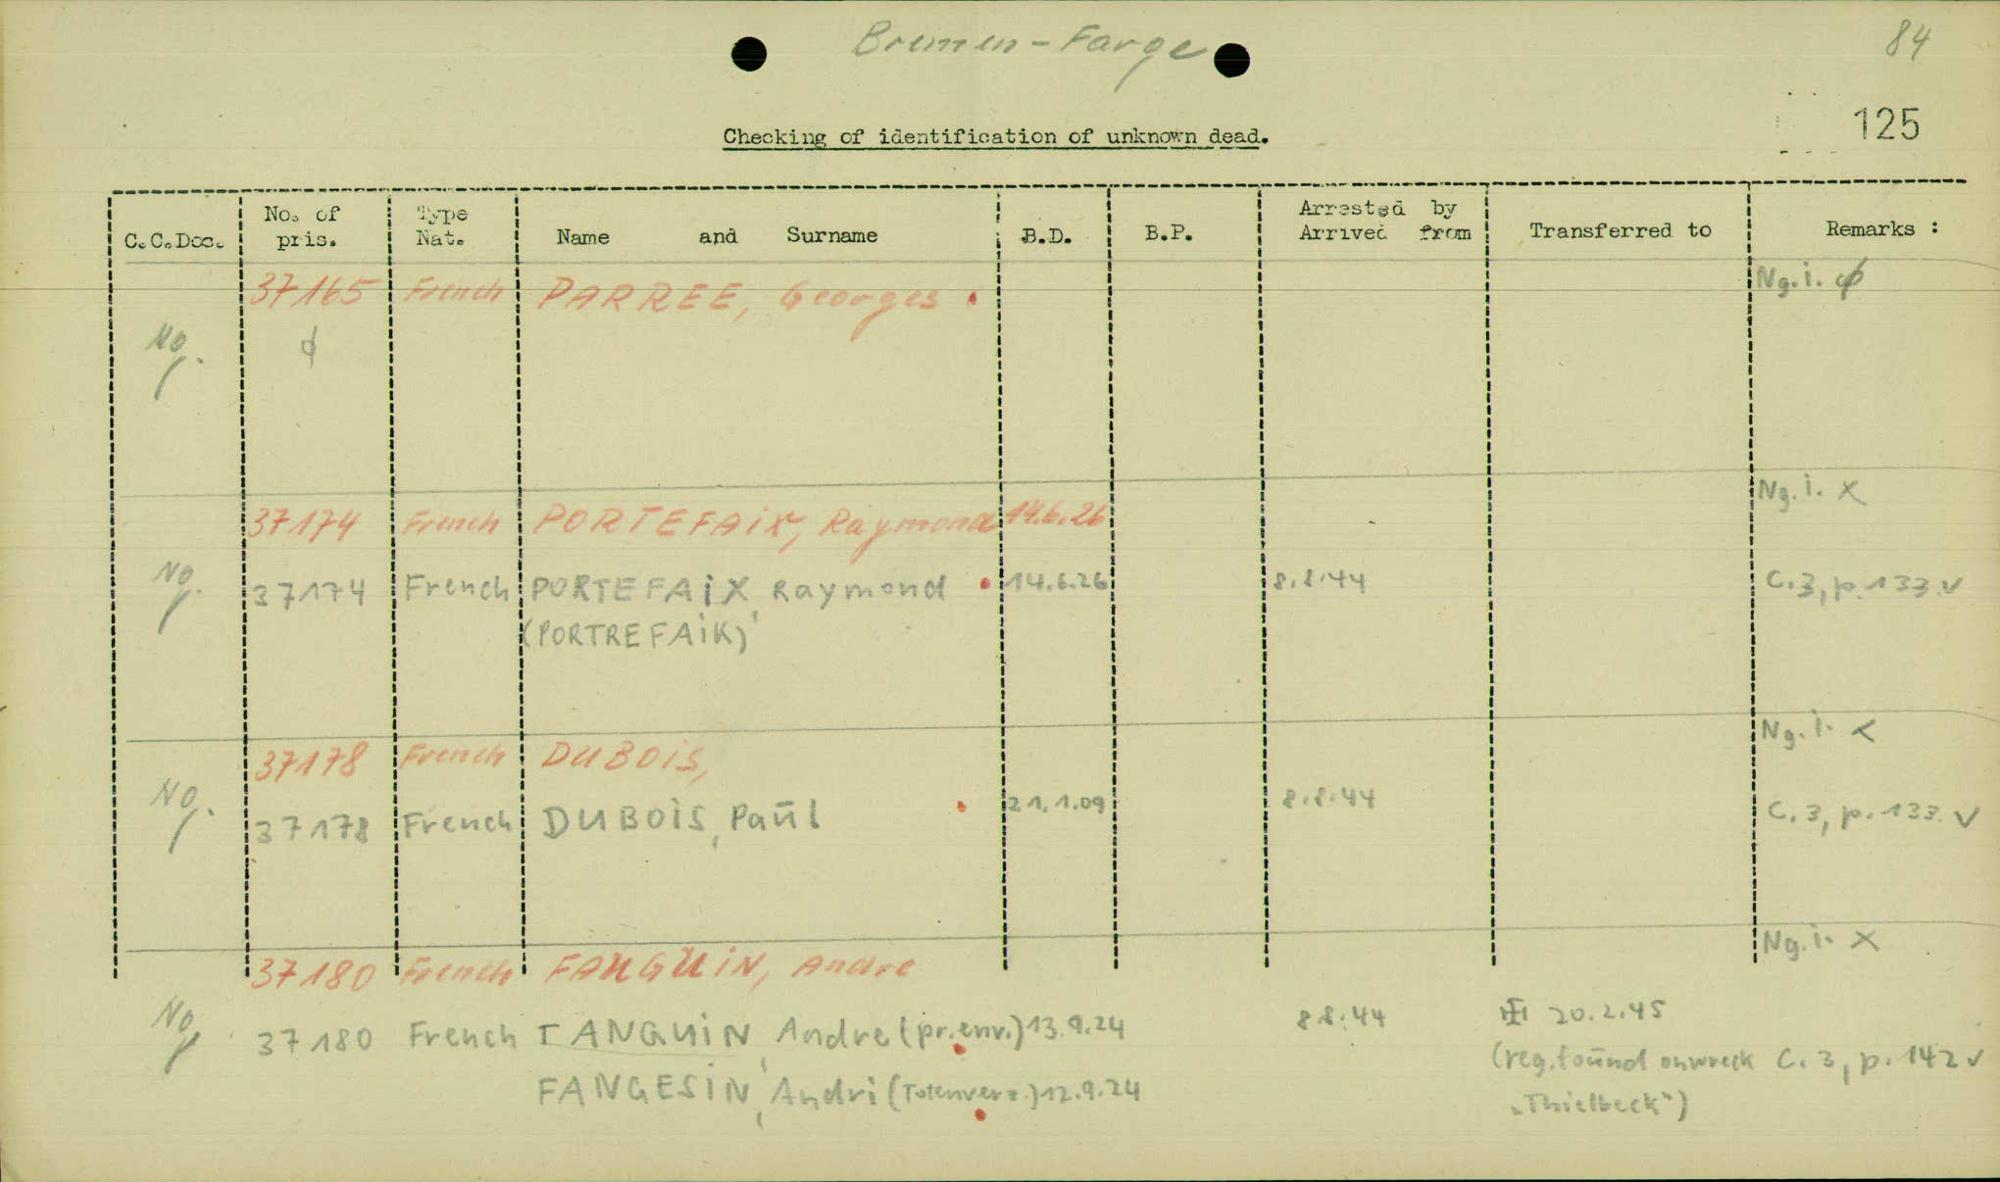 Bremen-Farge
84
125
Checking of identification of unknown dead.
C.C.Doc. No. of pris. Type Nat. Name and Surname B.D. B.P. Arrested by Arrived from Transferred to Remarks :
37165 French PARREE, Georges Ng.i. ф
Ng. ϕ
37174 French PORTEFAiX, Raymond 14.6.26 Ng.i. X
Ng. 37174 French PORTEFAiX, Raymond 14.6.26 8.8.44 C.3, p.133.v
(PORTREFAiK)
37178 French DUBOiS, Ng.i. <
Ng. 37178 French DUBOiS, Paūl 21.1.09 8.8.44 C.3, p.133. v
37180 French FANGUiN, Andre Ng.i. X
Ng. 37180 French TANGUiN, Andre (pr.env.) 13.9.24 8.8.44 20.2.45
(reg. foūnd on wreck C.3, p.142 v
FANGESiN, Andri (Totenverz.) 12.9.24 „Thielbeck")